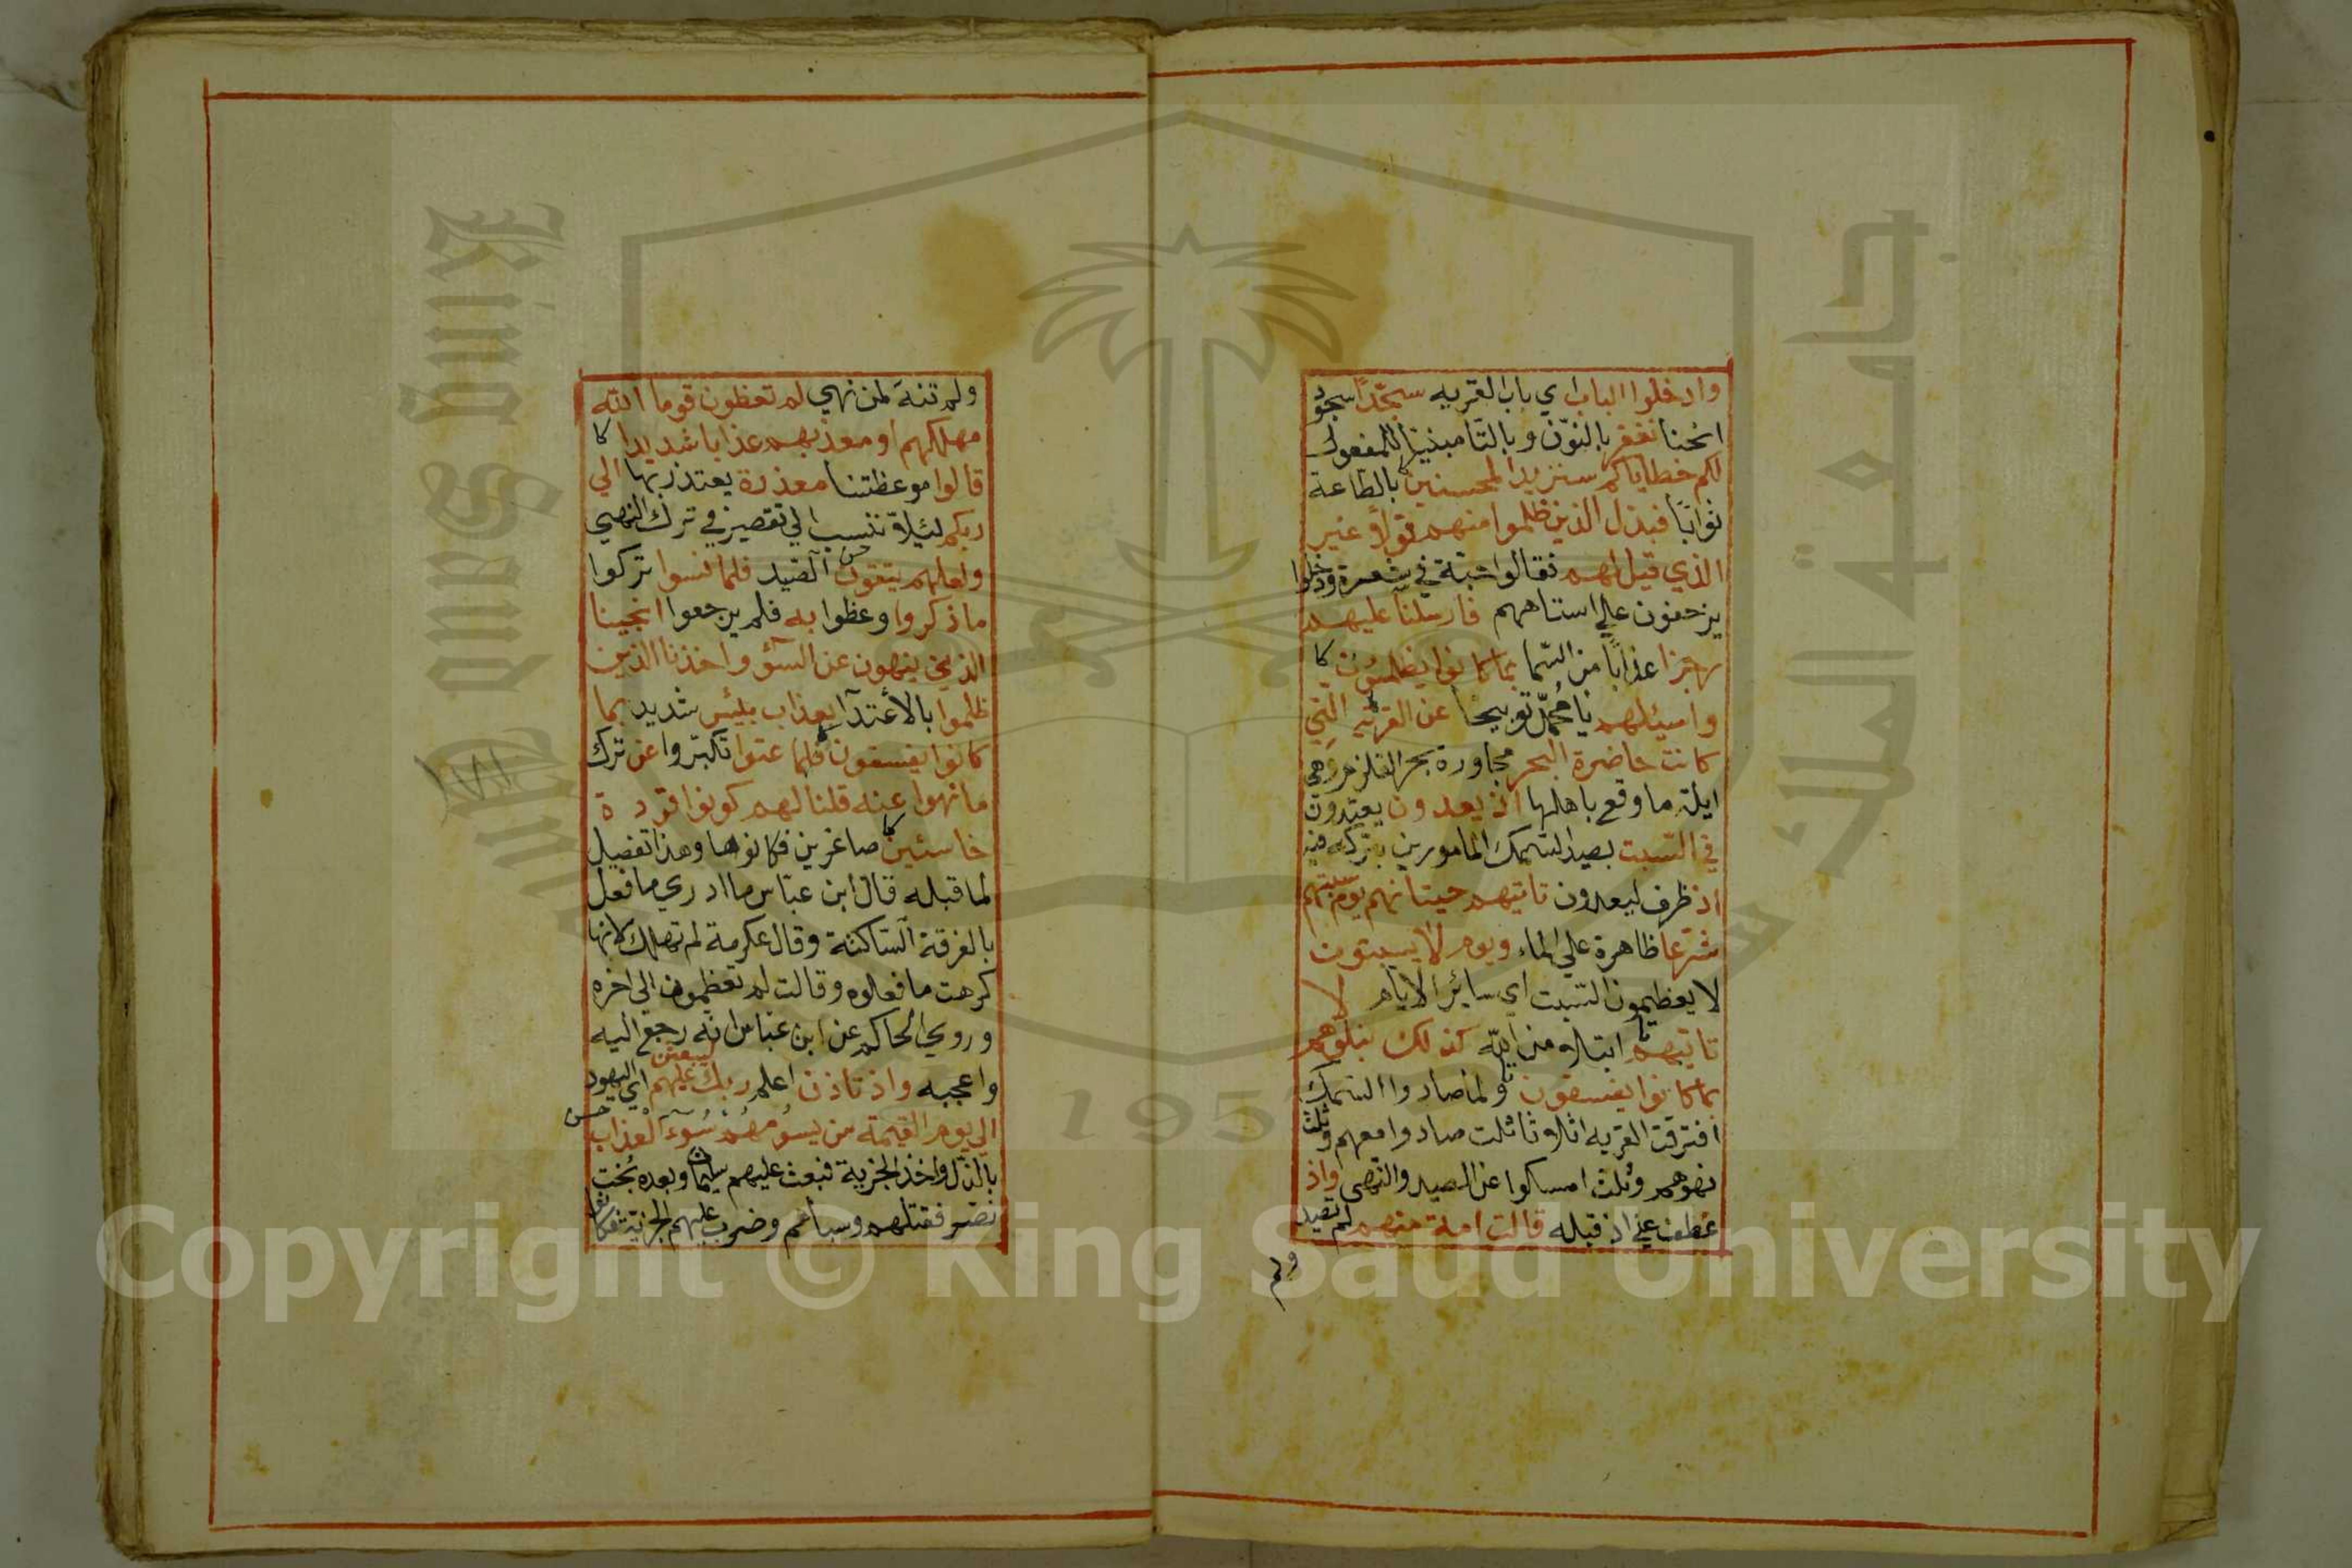 وادخلوا الباب اي باب القريه سجّدًا سجود
انحنا نغفر بالنّون وبالتا مبنيًا للمفعول
لكم خطاياكم سنزيد المحسنين بالطاعة
ثوابًا فبدل الذين ظلموا منهم قولاً غير
الذي قيل لهم فقالوا حبّة في شعرة ودخلوا
يزحفون علي استاههم فارسلنا عليهم
رجزا عذابًا من السّما بما كانوا يظلمون كا
واسئلهم يا محمّد توبيخا عن القرية التي
كانت حاضرة البحر مجاورة بحر القلزم وهي
ايلة ما وقع باهلها اذ يعدون يعتدون
في السّبت بصيد السّمك المامورين بتركه فيه
اذ ظرف ليعدون تاتيهم حيتانهم يوم سبتهم
شرّعا ظاهرة علي الماء ويوم لا يسبتون
لا يعظمون السّبت اي سائر الايام لا
تاتيهم ابتلاء من الله كذلك نبلوهم
بما كانوا يفسقون ولما صادوا السّمك
افترقت القريه اثلاثا ثلث صادوا معهم وثلث
نهوهم وثلث امسكوا عن الصيد والنّهي واذ
عطف علي اذ قبله قالت امة منهم لم تصيد
ولم
ولم تنه لمن نهي لم تعظون قوما الله
مهلكهم او معذبهم عذابا شديدا كا
قالوا موعظتنا معذرة يعتذر بها الي
ربكم ليلا ننسب الي تقصير في ترك النهي
ولعلهم يتقون حس الصّيد فلما نسوا تركوا
ما ذكروا وعظوا به فلم يرجعوا انجينا
الذين ينهون عن السّوء واخذنا الذين
ظلموا بالأعتدآ بعذاب بئيس شديد بما
كانوا يفسقون فلما عتوا تكبّروا عن ترك
ما نهوا عنه قلنا لهم كونوا قردة
خاسئين كا صاغرين فكانوها وهذا تفصيل
لما قبله قال ابن عبّاس ما ادري ما فعل
بالفرقة السّاكتة وقال عكرمة لم تهلك لانها
كرهت ما فعلوه وقالت لم تعظون الي اخره
وروي الحاكم عن ابن عبّاس انّه رجع اليه
واعجبه واذ تاذن اعلم ربك ليبعثن عليهم اي اليهود
الي يوم القيمة من يسومهم سُوٓء العذاب حس
بالذّل واخذ الجزية فبعث عليهم سليمان وبعده بُخت
نصّر فقتلهم وسباهم وضرب عليهم الجزية فكانوا
King Saud University
جامعة الملك
195
Copyright © King Saud University